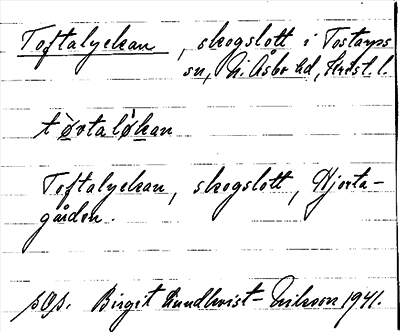 Toftalyckan, skogslott i Tostarps
sn, N. Åsbo hd, Krist. l.
tø̀vtalø̍kan
Toftalyckan, skogslott, Hjorta-
gården.
Birgit Lundkvist-Eriksson 1941.